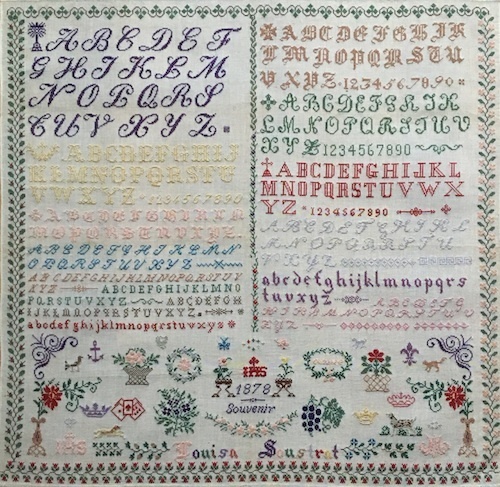 ABCDEF
GHIJKLM
NOPQRS
TUVXYZ
ABCDEFGHIJ
KLMNOPQRSTU
VWXYZ 1234567890
ABCDEFGHIJKLM
NOPQRSTUVXYZ
ABCDEFGHIJKLMN
OPQRSTUVXYZ
ABCDEFGHIJKLMNOPQRSTUV
XYZ ABCDEFGHIJKLMNO
PQRSTUVXYZ ABCDEFGH
IJKLMNOPQRSTUVXYZ
abcdefghijklmnopqrstuvxyz
ABCDEFGHIK
LMNOPQRSTU
VXYZ 1234567890
ABCDEFGHIK
LMNOPQRSTUVX
YZ 1234567890
ABCDEFGHIJKL
MNOPQRSTUVWX
YZ 1234567890
ABCDEFGHI
JKLMNOPQRSTU
VXYZ
abcdefghijklmnopqrs
tuvxyz
IHS
1878
Souvenir
Louisa Soustrat